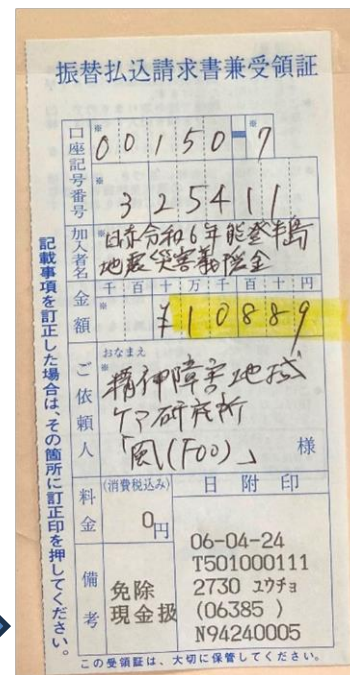 振替払込請求書兼受領証
口座記号番号
※
00150-7
※
325411
加入者名
※日赤令和6年能登半島
地震災害義援金
金額
千百十万千百十円
※
¥10889
ご依頼人
おなまえ
※
精神障害地域
ケア研究所
「風(Foo)」
様
料金
(消費税込み)
0円
日附印
備考
免除
現金扱
06-04-24
T501000111
2730 ユウチョ
(06385 )
N94240005
記載事項を訂正した場合は、その箇所に訂正印を押してください。
この受領証は、大切に保管してください。